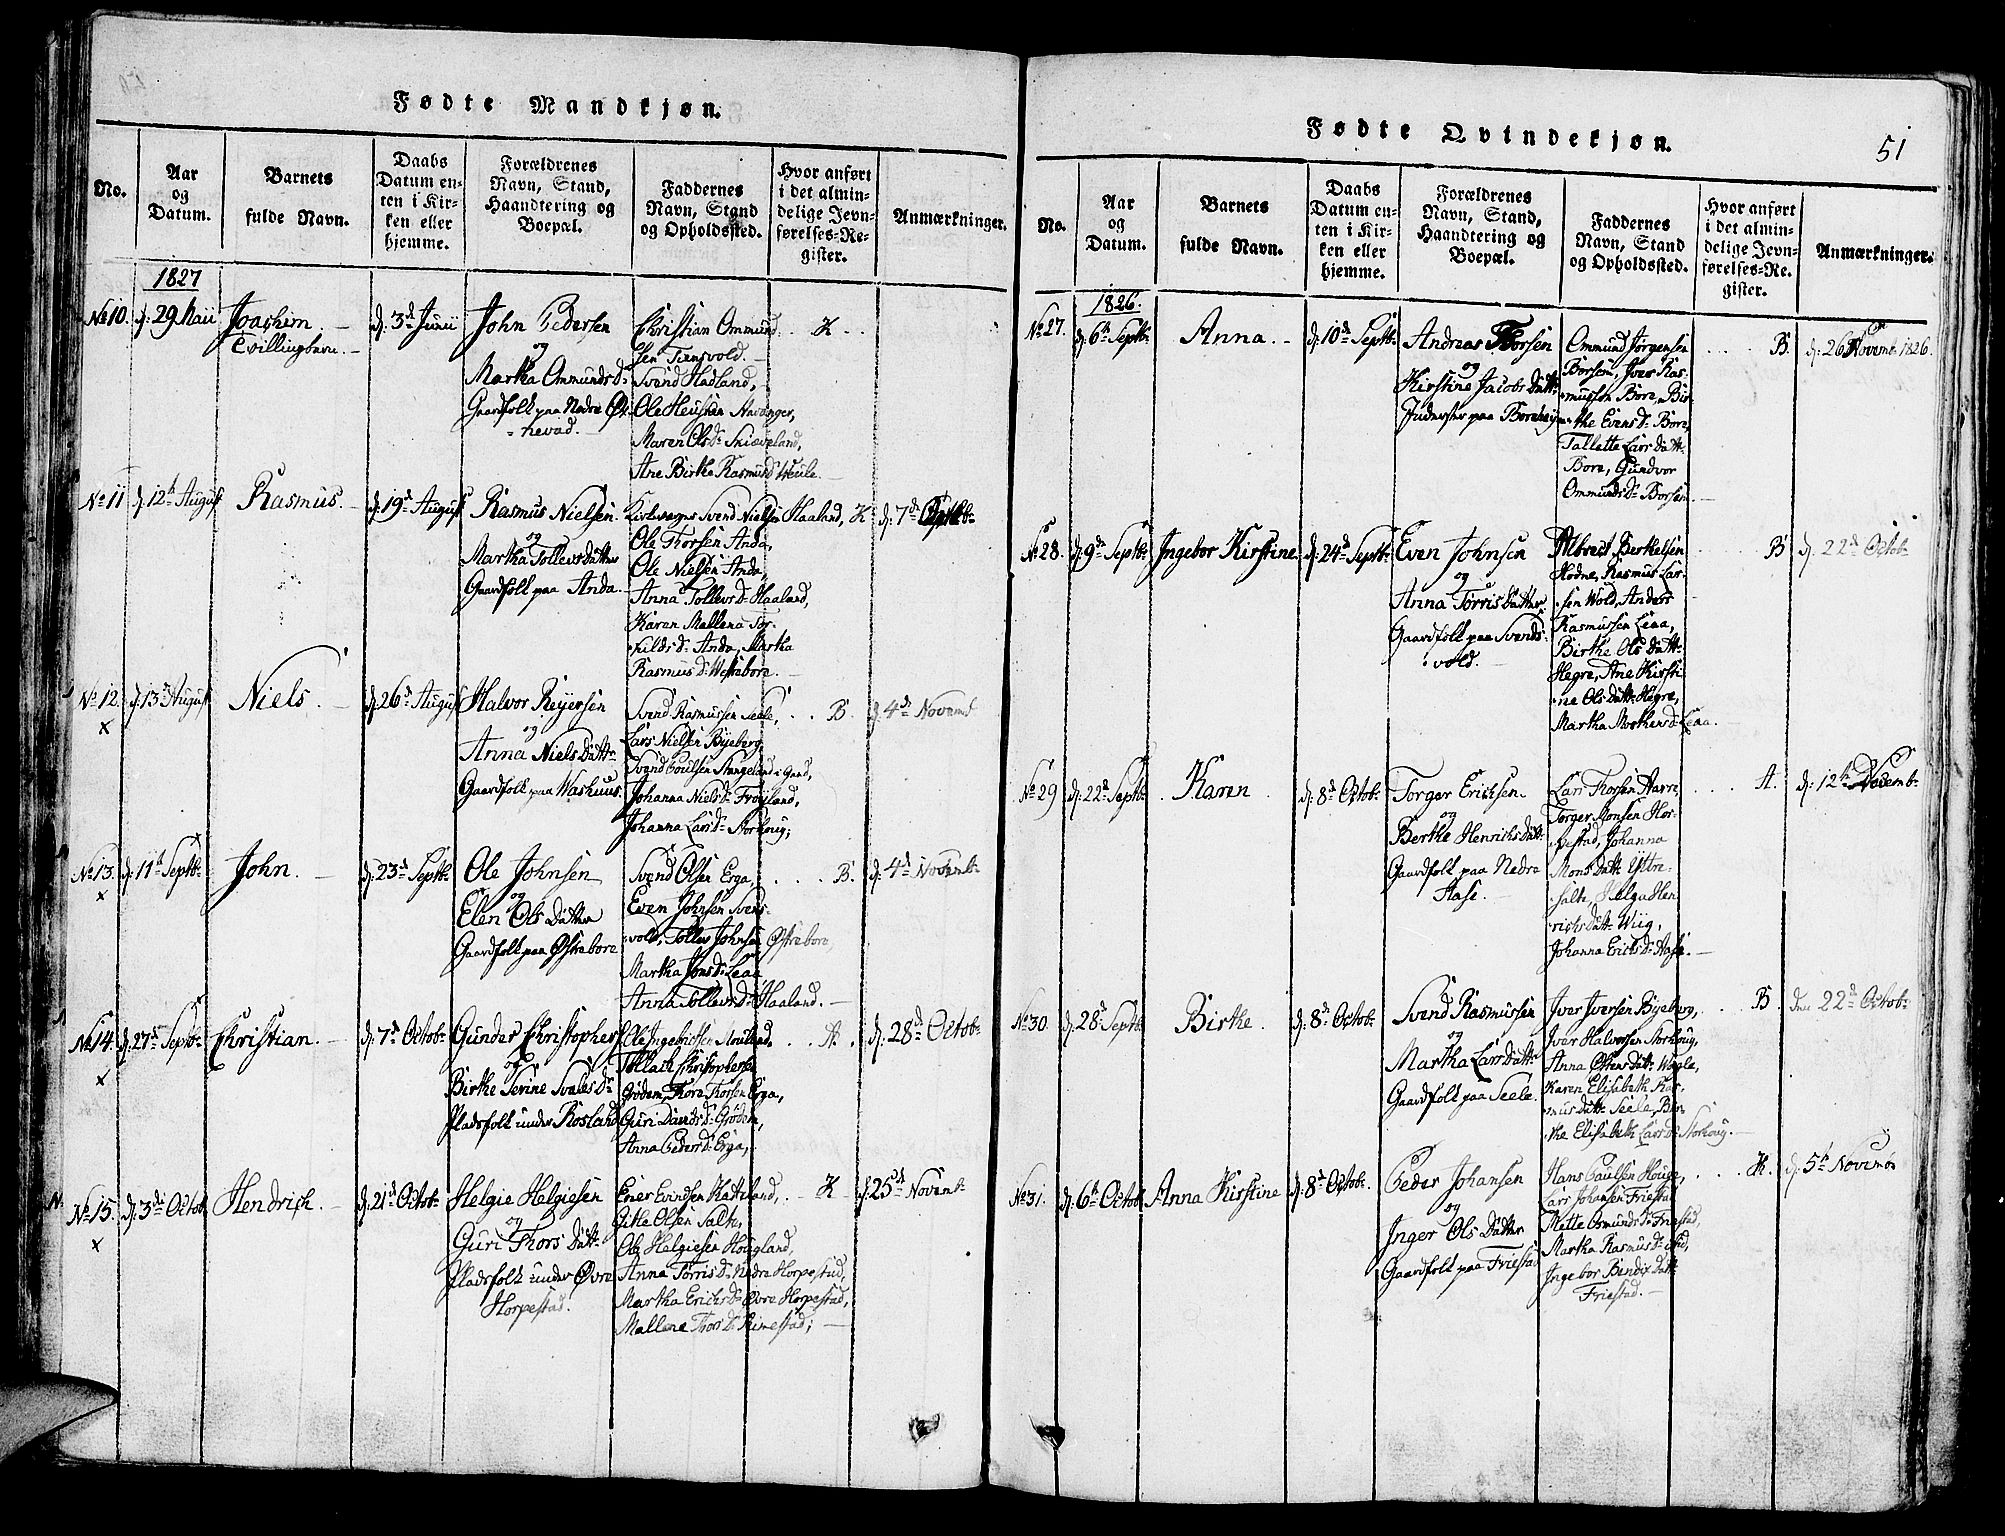 Fødte Mandkjøn.
No.
Aar
og
Datum.
Barnets
fulde Navn.
Daabs
Datum en-
ten i Kir-
ken eller
hjemme.
Forældrenes
Navn, Stand,
Haandtering og
Boepæl.
Faddernes
Navn, Stand
og Opholdssted.
Hvor anført
i det almin-
delige Jevn-
førelses-Re-
gister.
Anmærkninger.
1827
No 10.
d. 29 Maii
Joachim.
Tvillingbarn.
d. 3d Junii
John Pedersen
og
Martha Ommundsd.
Gaardfolk paa Nedre Øx-
nevad.
Christian Ommund-
sen Tiensvold.
Svend Hadland,
Ole Heusen Stavanger,
Maren Olsd. Skiæveland,
Ane Birthe Rasmusd.
K.
No 11
d. 12te August
Rasmus.
d. 19d August
Rasmus Nielsen
og
Martha Tollevsdatter
Gaardfolk paa Anda.
Kirkeværge Svend Nielsen Haaland,
Ole Thorsen Anda,
Ole Nielsen Anda,
Anna Tollevsd. Haaland,
Karen Mallena Tor-
kildsd. Anda, Martha
Rasmusd. Westrebore.
K.
d. 7d Octob.
No 12.
x
d. 13d August
Niels.
d. 26d August
Halvor Reyersen
og
Anna Nielsdatter
Gaardfolk paa Washuus.
Svend Rasmussen Seele,
Lars Nielsen Byeberg,
Svend Poulsen Stangeland i Gand,
Johanna Nielsd. Frøyland,
Johanna Larsd. Storhoug;
B.
d. 4d Novemb
No 13.
x
d. 11te Septb.
John.
d. 23d Septb.
Ole Johnsen
og
Elen Olsdatter
Gaardfolk paa Østrebore
Svend Olsen Erga,
Even Johnsen Svens-
vold, Tollev Johnsen Østrebore,
Martha Jonsd. Leaa
Anna Tollevsd. Haaland.
B.
d. 4d Novemb.
No 14.
x
d. 27d Septb.
Christian.
d. 7d Octob.
Gunder Christophers
og
Birthe Serine Svalesd.
Pladsfolk under Rosland
Ole Ingebretsen
Tollach Christophersen
Grödem, Thore Thorsen Erga,
Guri Davidsd. Grödem,
Anna Pedersd. Erga,
A.
d. 28d Octob.
N.
No 15.
x
d. 3die Octob.
Hendrich.
d. 21d Octob.
Helgie Helgiesen
og
Guri Thorsdatt.
Pladsfolk under Øvre
Horpestad.
Ener Evindsen Katteland,
Gitle Olsen Salte,
Ole Helgiesen Hougland,
Anna Torrisd. Nedre Horpestad,
Martha Erichsd. Øvre Horpestad,
Mallene Thorsd. Rimestad;
K
d. 25d Novemb.
Fødte Qvindekjøn.
51
No.
Aar
og
Datum.
Barnets
fulde Navn.
Daabs
Datum en-
ten i Kir-
ken eller
hjemme.
Forældrenes
Navn, Stand,
Haandtering og
Boepæl.
Faddernes
Navn, Stand
og Opholdssted.
Hvor anført
i det almin-
delige Jevn-
førelses-Re-
gister.
Anmærkninger.
1826.
No 27.
d. 6te Septb.
Anna.
d. 10d Septb.
Andreas Thorsen
og
Kirstine Jacobsdatt.
Inderster paa Boreheym
Ommund Jørgensen
Borsem, Iver Ras-
mussen Bore, Bir-
the Evensd. Bore,
Tallette Larsdatt.
Bore, Gundvor
Ommundsd. Borsem.
B.
d. 26 Novemb. 1826.
No 28.
d. 9de Septb.
Ingebor Kirstine
d. 24d Septb.
Even Johnsen
og
Anna Torrisdatter
Gaardfolk paa Svends-
vold.
Albrect Berthelsen
Hodne, Rasmus Lar-
sen Wold, Anders
Rasmussen Leaa,
Birthe Olsdatt.
Hegre, Ane Kirsti-
ne Olsdatt. Hegre,
Martha Morthensd. Leaa.
B
d. 22d Octob.
No 29
d. 22d Septb.
Karen
d. 8d Octob.
Torger Erichsen
og
Berthe Henrichsdatt.
Gaardfolk paa Nedre
Aase.
Lars Thorsen Harre,
Torger Monsen Hor-
pestad, Johanna
Monsdatt. Yttre-
salte, Helga Hen-
richsdatt. Wiig,
Johanna Erichsd. Aase.
A.
d. 12te Novemb.
No 30.
d. 28d Septb.
Birthe.
d. 8d Octob.
Svend Rasmussen
og
Martha Larsdatter
Gaardfolk paa Seele.
Iver Iversen Byeberg,
Iver Halvorsen Storhoug,
Anna Ostensdatt. Wagle,
Karen Elisabeth Ras-
musdatt. Seele, Bir-
the Elisabeth Larsd. Storhoug.
B
den 22d Octob.
No 31.
d. 6te Octob.
Anna Kirstine
d. 8d Octob.
Peder Johansen
og
Inger Olsdatter
Gaardfolk paa Friestad
Hans Paulsen Houge,
Lars Johansen Friestad
Mette Osmundsd. Friestad,
Martha Rasmusd.
Ingebor Bendixdatt.
Friestad.
K.
d. 5te Novemb